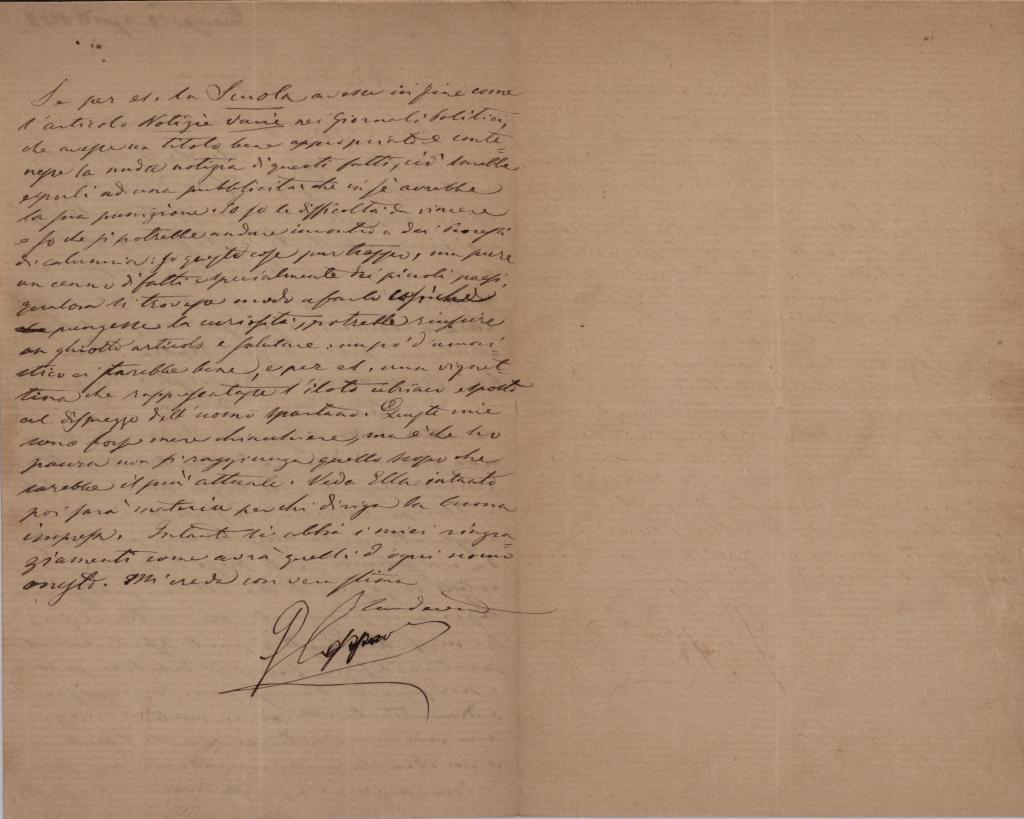 Se per es. la Scuola avesse in fine come
l'articolo Notizie varie nei Giornali Politici,
che avesse un titolo bene appropriato e conte=
nesse la nuda notizia di questi fatti, ciò sarebbe
esporli ad una pubblicità che in sè avrebbe
la sua punizione. Io so le difficoltà da vincere
e so che si potrebbe andare incontro a dei Processi
di calunnia: so queste cose pur troppo, ma pure
un cenno di fatti e specialmente dei piccoli paesi,
qualora si trovasse modo a farlo
pungesse la curiosità, potrebbe riuscire
un ghiotto articolo e salutare: un po' d'umori=
stico ci starebbe bene, e per es. una vignet=
tina che rappresentasse l'ilota ubriaco esposto
al disprezzo dell'uomo spartano. Queste mie
sono forse mere chiacchiere, ma è che ho
paura non si raggiunga quello scopo che
sarebbe il più attuale. Veda Ella intanto
poi sarà materia per chi diriga la buona
impresa. Intanto si abbia i miei ringra=
ziamenti come avrà quelli d'ogni uomo
onesto. Mi creda con vera stima